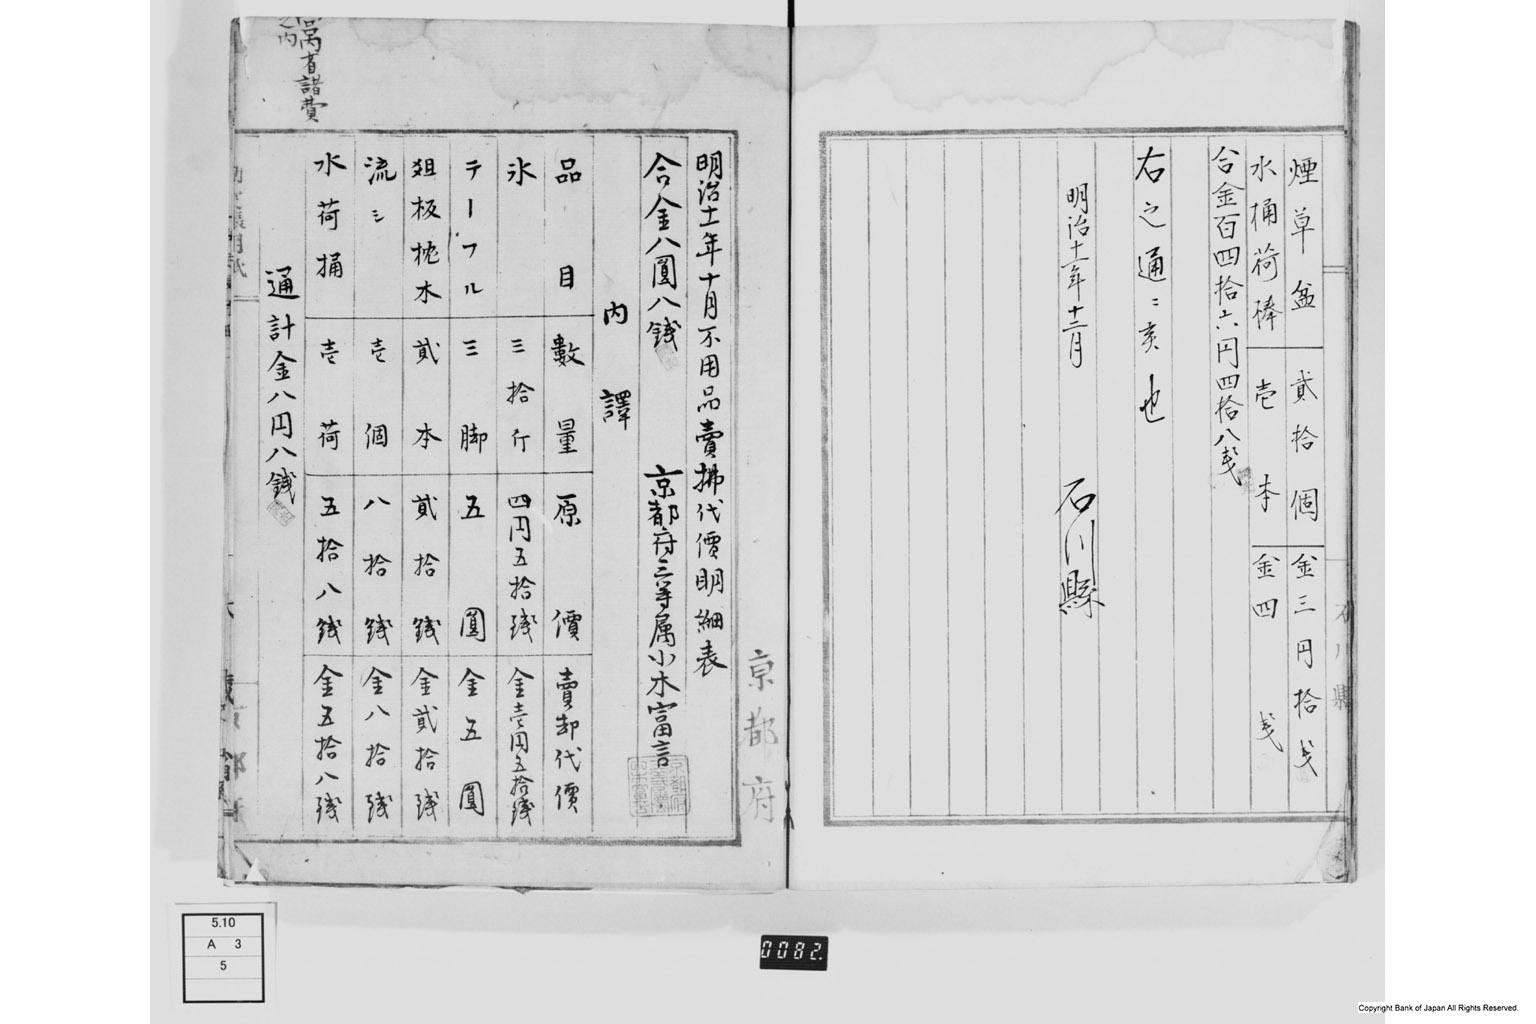 煙草盆 貳拾個 金三円拾戋
水桶荷棒 壱本 金四戋
合金百四拾六円四拾八戋
右之通ニ候也
明治十一年十二月
石川縣
石川縣
京都府
明治十一年十月不用品賣拂代價明細表
合金八圓八錢
京都府三等属小木富言
内譯
品目 數量 原價 賣却代價
氷 三拾斤 四円五拾錢 金壱円五拾錢
テーフル 三脚 五圓 金五圓
爼板枕木 貳本 貳拾錢 金貳拾錢
流シ 壱個 八拾錢 金八拾錢
水荷桶 壱荷 五拾八錢 金五拾八錢
通計金八円八錢
省諸費
之内
5.10
A 3
5
0082.
Copyright Bank of Japan All Rights Reserved.